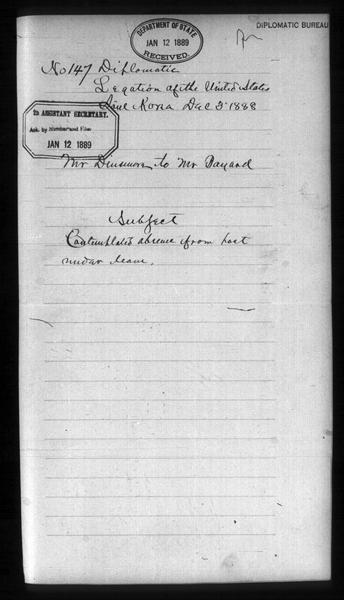 DEPARTMENT OF STATE
JAN 12 1889
RECEIVED.
DIPLOMATIC BUREAU
No 147 Diplomatic
Legation of the United States
Söul Korea Dec 5 1888
2D ASSISTANT SECRETARY.
Ack. by Number and File
JAN 12 1889
Mr Dinsmore to Mr Bayard
Subject
Contemplated absence from post
under leave.